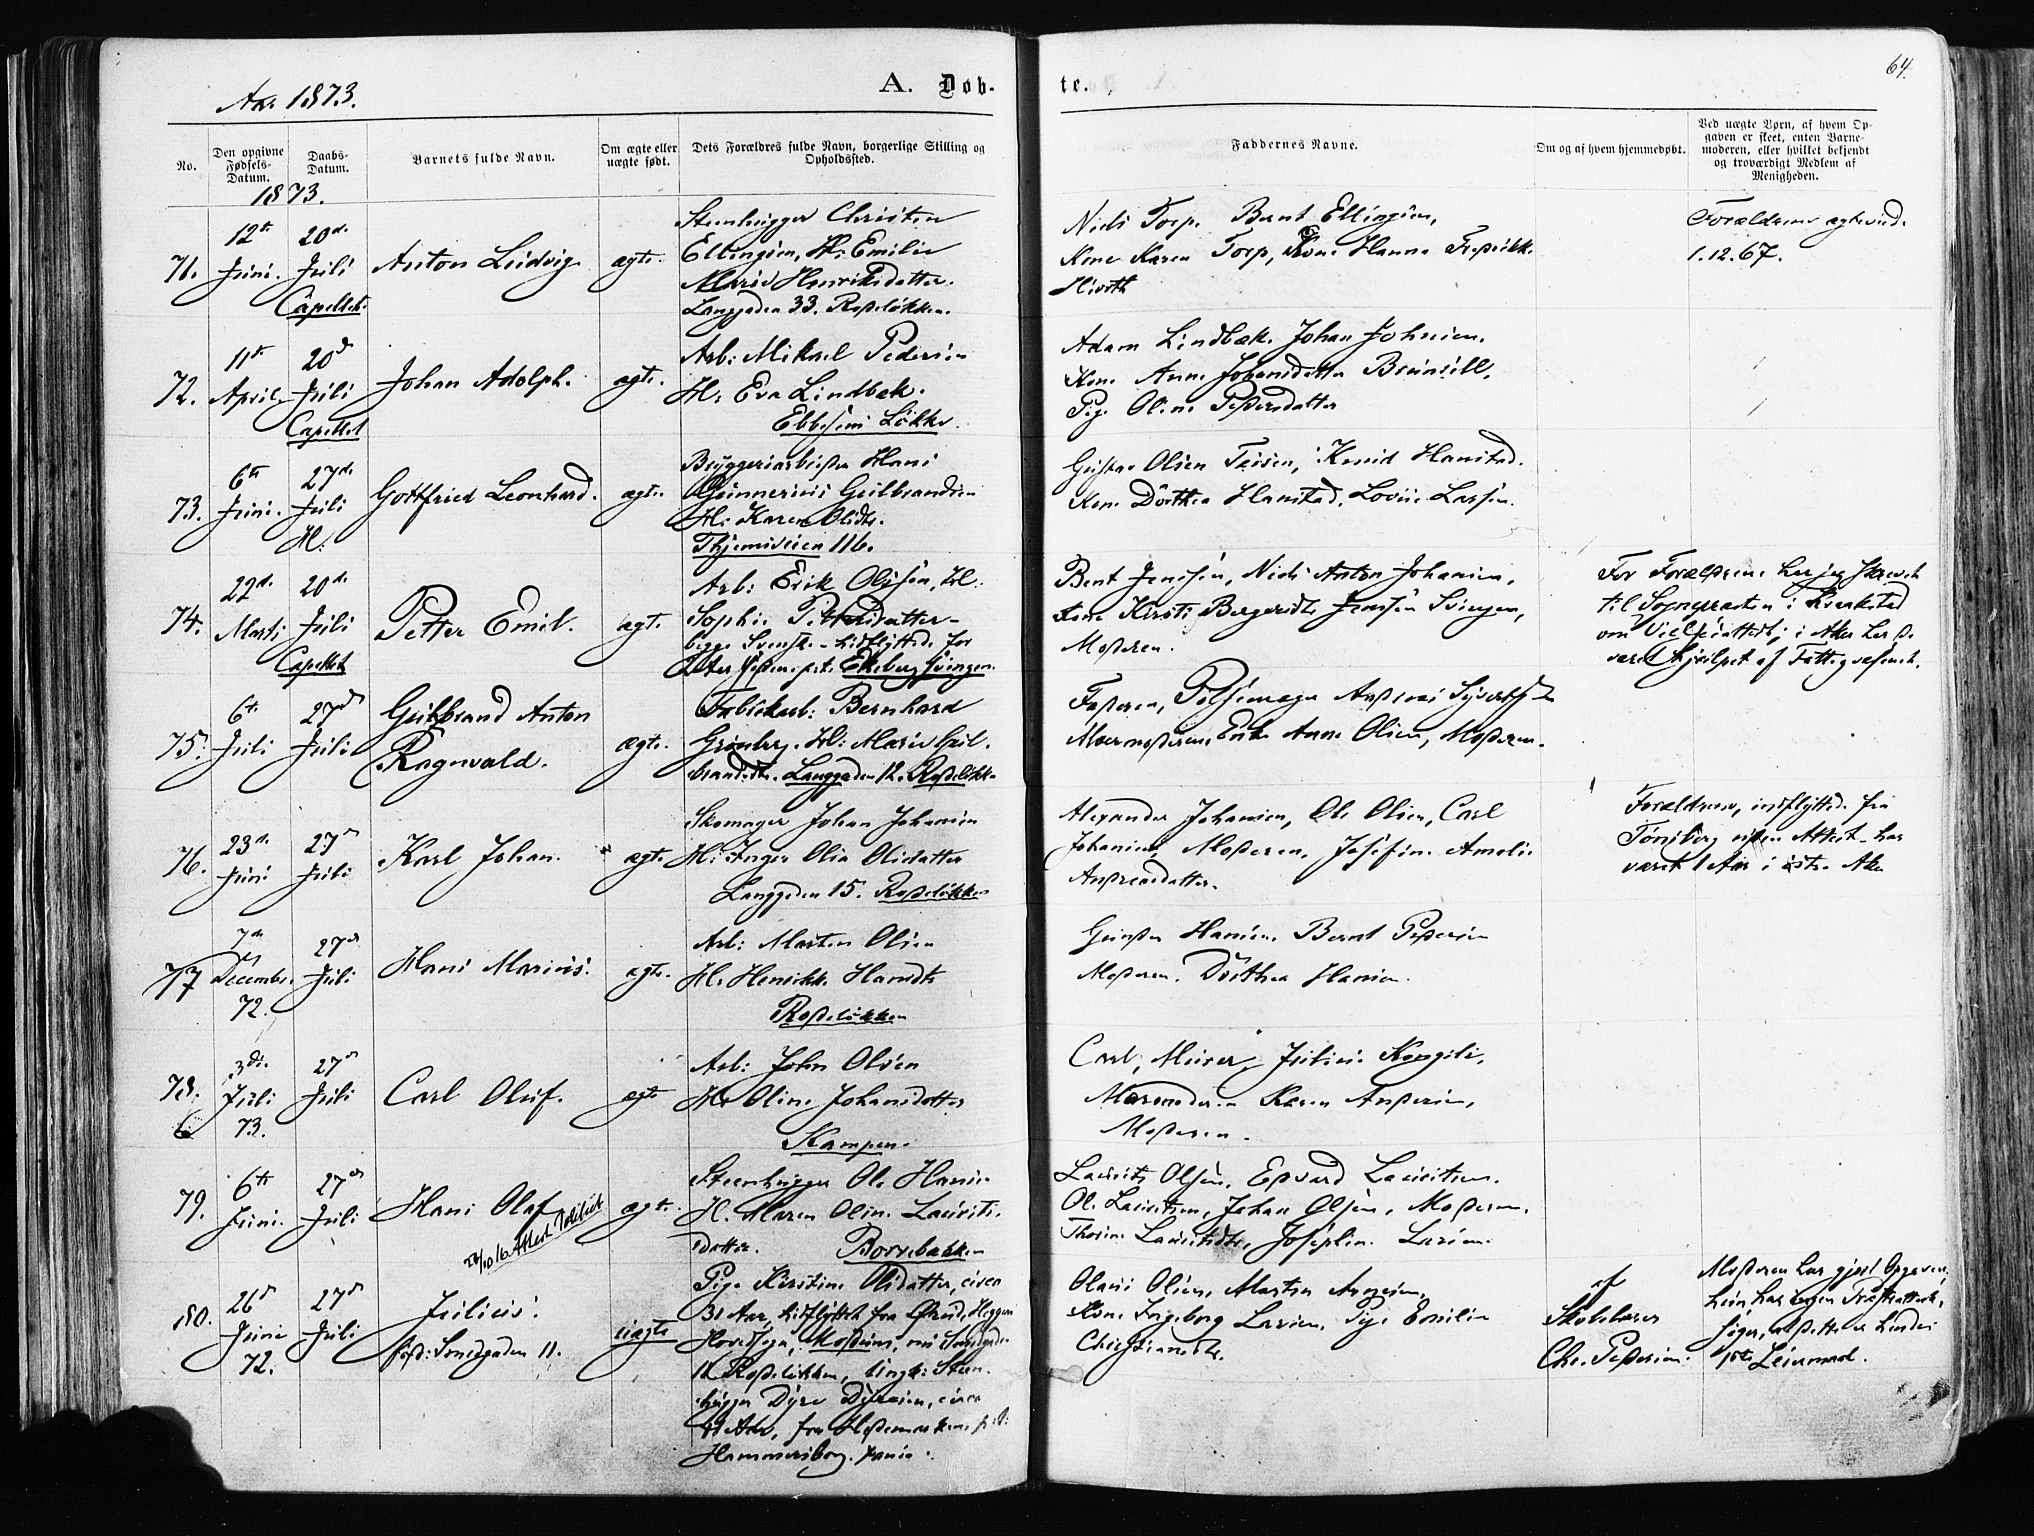 64.
Aar 1873.
A. Døb-
te.
No.
Den opgivne Fødsels-Datum.
Daabs-Datum.
Barnets fulde Navn.
Om ægte eller uægte født.
Dets Forældres fulde Navn, borgerlige Stilling og Opholdssted.
Faddernes Navne.
Om og af hvem hjemmedøbt.
Ved uægte Børn, af hvem Opgaven er skeet, enten Barnemoderen, eller hvilket bekjendt og troværdigt Medlem af Menigheden.
1873.
71.
12te Juni.
20de Juli Capellet.
Anton Ludvig
ægte.
Steenhugger Christen
Ellingsen, H: Emilie
Marie Henriksdatter.
Langgaden 33. Rodeløkken.
Niels Torp. Bernt Ellingsen,
Kone Karen Torp, Kone Hanna Fredrikke
Hiorth
Forældrene ægteviede
1.12.67.
72.
11te April
20de Juli Capellet
Johan Adolph.
ægte.
Arb: Mikael Pedersen
H: Eva Lindbæk.
Ebbesens Løkke.
Adam Lindbæk. Johan Johnsen.
Kone Anne Johansdatter
Pige Oline Pedersdatter
73.
6te Juni.
27de Juli H:
Gottfried Leonhard.
ægte.
Bryggeriarbeider Hans
Gunnerius Gulbrandsen
H: Karen Olsdtr.
116.
Gustav Olsen Knud Hanstad.
Kone Dorthea Hanstad. Lovise Larsen.
74.
22de Marts
20de Juli Capellet
Petter Emil.
ægte
Arb: Erik Olsson, H:
Sophie Pettersdatter-
begge Svenske - hidflyttede for
Ekebergsvingen.
Bent Jensen, Niels Anton Johansen,
Kone Kirsti Børgersdtr Svingen,
Moderen.
For Forældrene har jeg skrevet
til Sognepræsten i
om Vielsesattest; i Aker har de
været hjulpet af Fattigvæsenet.
75.
6te Juli
27de Juli
Gulbrand Anton
Ragnvald.
ægte.
Fabrikarb: Bernhard
Grønberg. H: Marie Gul-
brandsdtr. Langgaden 12. Rodeløkken
Faderen, Pølsemager Andreas Syvertsen
Mormoderen, Enke Anne Olsen, Moderen.
76.
23de Juni
27de Juli
Karl Johan.
ægte
Skomager Johan Johansen
H: Inger Olia Olsdatter
Langgaden 15. Rodeløkken
Alexander Johansen, Ole Olsen, Carl
Johansen, Moderen, Josefine Amalie
Andreasdatter.
Forældrene, indflyttede fra
Tønsberg uden Attest - har
været 1 Aar i østre Aker
77
7de December. 72.
27de Juli
Hans Marius.
ægte.
Arb: Morten Olsen
H: Henrikke Hansdtr
Rodeløkken
Gunder Hansen. Bernt Pedersen
Moderen. Dorthea Hansen.
78.
3die Juli 73.
27de Juli
Carl Oluf.
ægte
Arb: John Olsen
H: Oline Johansdatter
Kampen.
Carl, Murer, Julius
Mormoderen Karen Andersen,
Moderen.
79.
6te Juni.
27de Juli
Hans Olaf
ægte.
Steenhugger Ole Hansen
H. Maren Oline Laurits-
datter. Borrebakken
Laurits Olsen, Edvard Lauritsen.
Ole Lauritsen, Johan Olsen, Moderen.
Thorine Lauritsdtr, Josephine Larsen.
80.
26de Juni 72.
27de Juli
Julius.
født: Smedgaden 11.
uægte
Pige Kirstine Olsdatter, circa
Aar, hidflyttet fra
Rodeløkken, Ungk: Steen-
hugger Dyre circa
Aar, fra Hedemarken,
Hammersborg.
Olaus Olsen, Morten Arnesen,
Kone Ingeborg Larsen, Pige Emilie
Christiansdtr.
af
Skolelærer
Chr. Pedersen.
Moderen har gjort Opgaven,
hun har ingen Præsteattest,
siger, at dette er hendes
1ste Leiermaal.